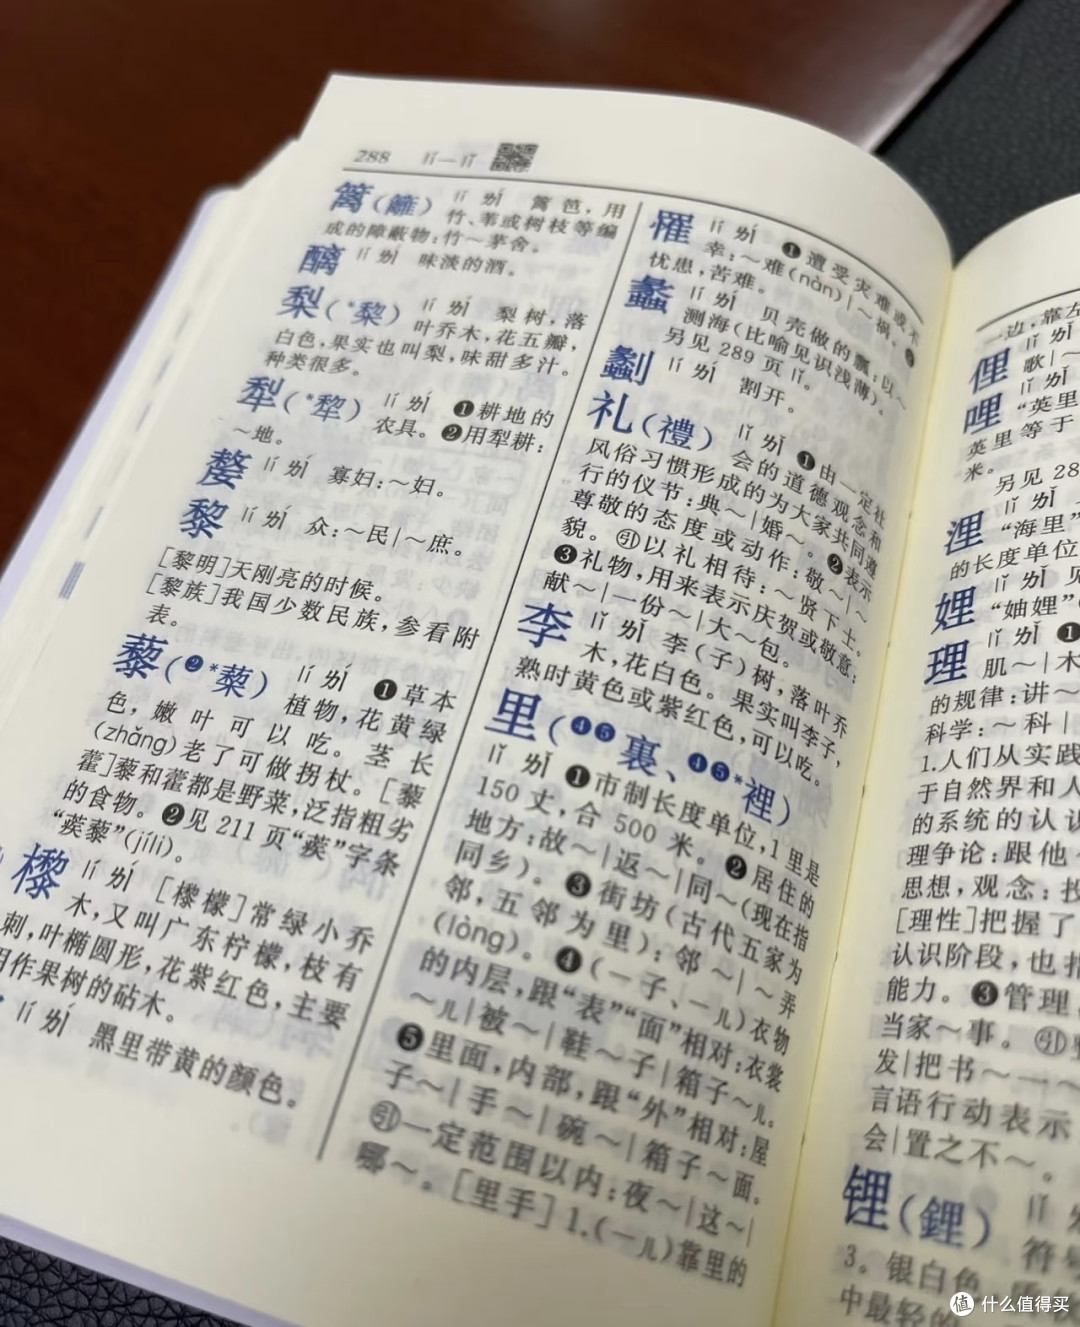 288 lí—lǐ
篱(籬) lí ㄌㄧˊ 篱笆，用
竹、苇或树枝等编
成的障蔽物：竹～茅舍。
醨 lí ㄌㄧˊ 味淡的酒。
梨(*棃) lí ㄌㄧˊ 梨树，落
叶乔木，花五瓣，
白色，果实也叫梨，味甜多汁。
种类很多。
犁(*犂) lí ㄌㄧˊ ❶耕地的
农具。❷用犁耕：
～地。
嫠 lí ㄌㄧˊ 寡妇：～妇。
黎 lí ㄌㄧˊ 众：～民|～庶。
[黎明]天刚亮的时候。
[黎族]我国少数民族，参看附
表。
藜(❷*蔾) lí ㄌㄧˊ ❶草本
植物，花黄绿
色，嫩叶可以吃。茎长
(zhǎng)老了可做拐杖。[藜
藿]藜和藿都是野菜，泛指粗劣
的食物。❷见211页“蒺”字条
“蒺藜”(jílí)。
檪 lí ㄌㄧˊ [檪檬]常绿小乔
木，又叫广东柠檬，枝有
刺，叶椭圆形，花紫红色，主要
用作果树的砧木。
lí ㄌㄧˊ 黑里带黄的颜色。
罹 lí ㄌㄧˊ ❶遭受灾难或不
幸：～难(nàn)|～祸。❷
忧患，苦难。
蠡 lí ㄌㄧˊ 贝壳做的瓢：以～
测海(比喻见识浅薄)。
另见289页lǐ。
劙 lí ㄌㄧˊ 割开。
礼(禮) lǐ ㄌㄧˇ ❶由一定社
会的道德观念和
风俗习惯形成的为大家共同遵
行的仪节：典～|婚～。❷表示
尊敬的态度或动作：敬～|～
貌。㊁以礼相待：～贤下士。
❸礼物，用来表示庆贺或敬意：
献～|一份～|大～包。
李 lǐ ㄌㄧˇ 李(子)树，落叶乔
木，花白色。果实叫李子，
熟时黄色或紫红色，可以吃。
里(❹❺裏、❹❺*裡)
lǐ ㄌㄧˇ ❶市制长度单位，1里是
150丈，合500米。❷居住的
地方：故～|返～|同～(现在指
同乡)。❸街坊(古代五家为
邻，五邻为里)：邻～|～弄
(lòng)。❹(一子、一儿)衣物
的内层，跟“表”“面”相对：衣裳
～儿|被～|鞋～子|箱子～儿。
❺里面，内部，跟“外”相对：屋
子～|手～|碗～|箱子～面。
㊁一定范围以内：夜～|这～|
哪～。[里手]1.(一儿)靠里的
一边，靠左
俚 lǐ ㄌㄧˇ
歌|～
哩 lǐ ㄌㄧˇ
“英里
英里等于
米。
另见28
浬 lǐ ㄌㄧˇ
“海里”
的长度单位
娌 lǐ ㄌㄧˇ 见
“妯娌”
理 lǐ ㄌㄧˇ ❶
肌～|木
的规律：讲～
科学：～科|
1.人们从实践
于自然界和人
的系统的认识
理争论：跟他
思想，观念；投
[理性]把握了
认识阶段，也指
能力。❸管理，
当家～事。㊁整
发|把书～一～
言语行动表示
会|置之不～。
锂(鋰) lǐ ㄌㄧˇ
符号
3。银白色，质
中最轻的
值 什么值得买